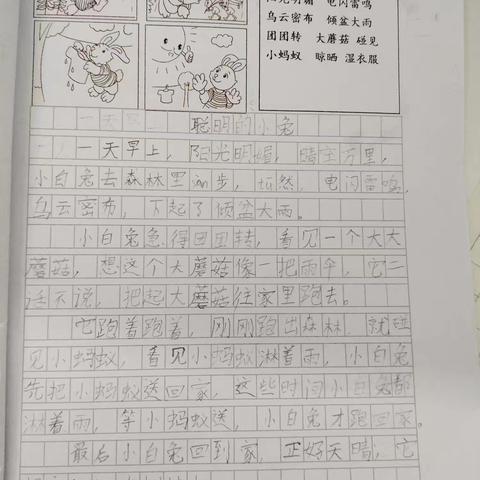 阳光明媚 电闪雷鸣
乌云密布 倾盆大雨
团团转 大蘑菇 碰见
小蚂蚁 晾晒 湿衣服
聪明的小兔
一天早上，阳光明媚，晴空万里，
小白兔去森林里散步，忽然，电闪雷鸣，
乌云密布，下起了倾盆大雨。
小白兔急得团团转，看见一个大大
蘑菇，想这个大蘑菇像一把雨伞，它二
话不说，把起大蘑菇往家里跑去。
它跑着跑着，刚刚跑出森林，就碰
见小蚂蚁，看见小蚂蚁淋着雨，小白兔
先把小蚂蚁送回家，这些时间小白兔都
淋着雨，等小蚂蚁送，小白兔才跑回家。
最后小白兔回到家，正好天晴，它